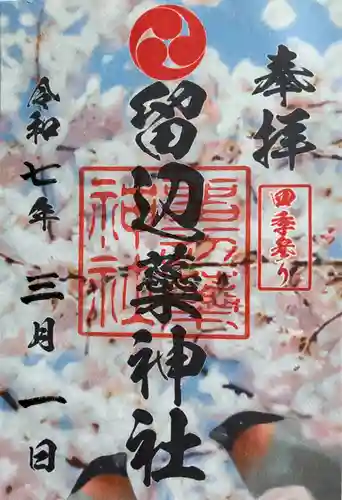 奉拝
四季祭り
留辺蘂神社
令和七年三月一日